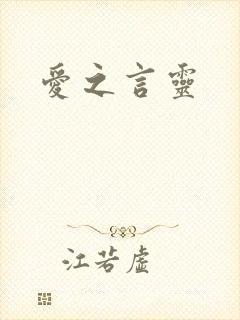 愛之言靈
江若虛